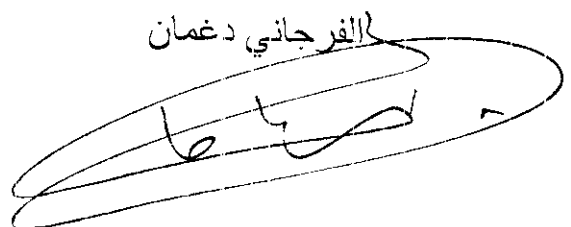 الفرجاني دغمان